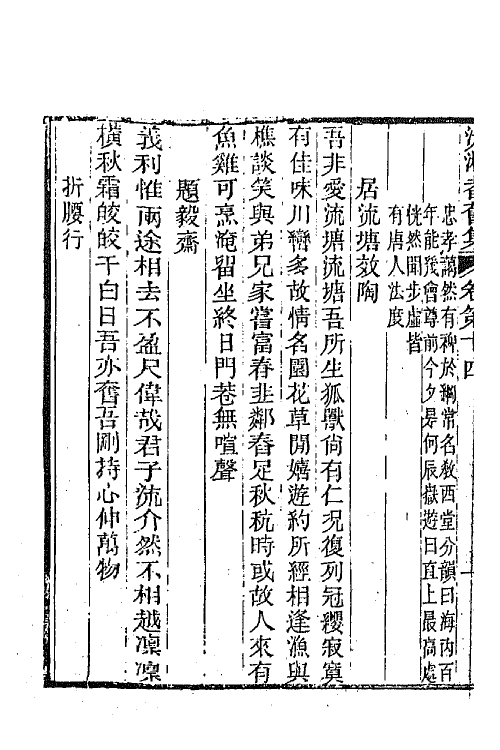 忠孝藹然有裨於綱常名教西堂分韻曰海內百
年能幾會尊前今夕是何辰嶽遊曰直上最高處
恍然閒步虛皆
有唐人法度
居流塘效陶
吾非愛流塘流塘吾所生狐獸尙有仁況復列冠纓寂寞
有佳味川巒多故情名園花草閒嬉遊約所經相逢漁與
樵談笑與弟兄家嘗富春韭鄰舂足秋秔時或故人來有
魚雞可烹淹留坐終日門巷無喧聲
題毅齋
義利惟兩途相去不盈尺偉哉君子流介然不相越凜凜
橫秋霜皎皎干白日吾亦奮吾剛持心伸萬物
折腰行